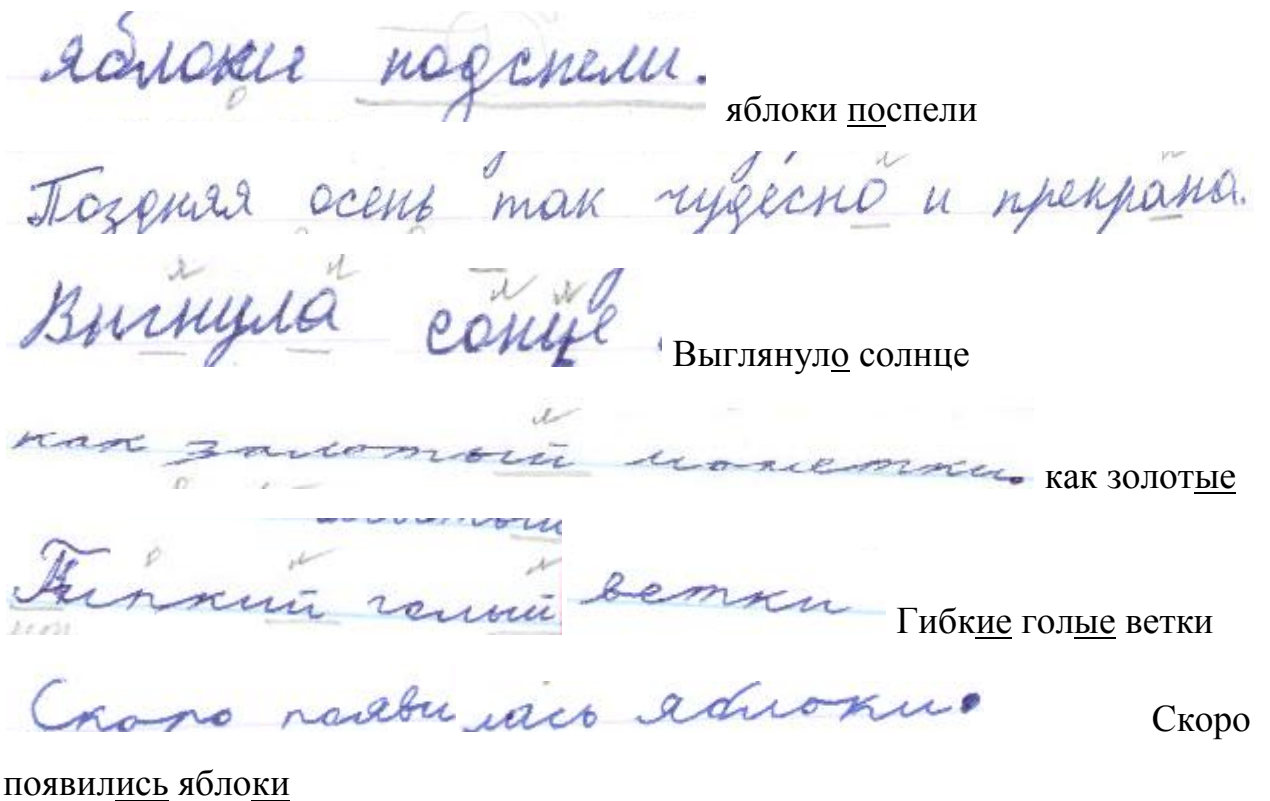 яблоки подспели. яблоки поспели
Поздняя осень так чудесно и прекрана.
Выгнула сонце. Выглянуло солнце
как залотый монетки. как золотые
Гипкий голый ветки Гибкие голые ветки
Скоро паявилась яблоки. Скоро
появились яблоки